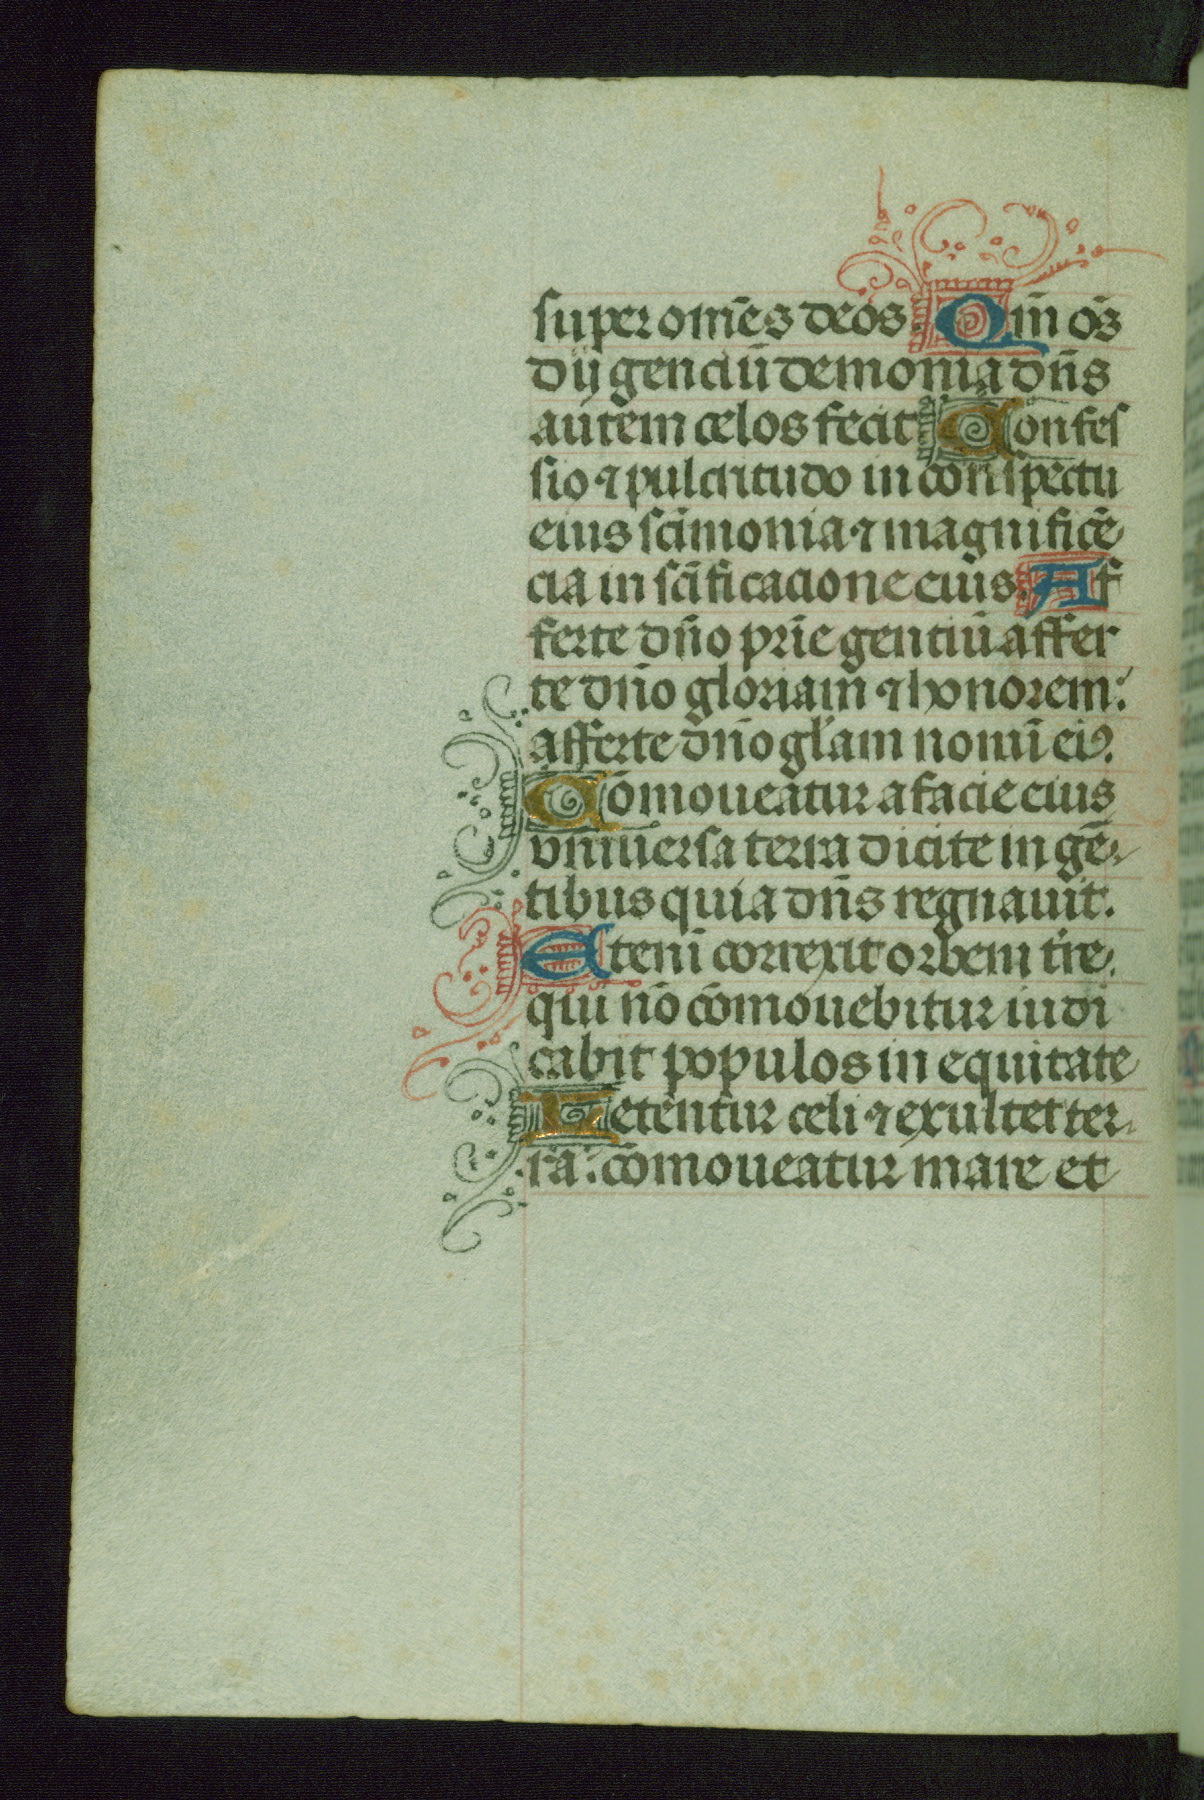 super om̄es deos. Qm̄ om̄s
dij genciū demonia dn̄s
autem celos fecit Confes
sio ⁊ pulcritudo in conspectu
eius scīmonia ⁊ magnificē
cia in scīficacione eius. Af
ferte dn̄o pr̄ie gentiū affer
te dn̄o gloriam ⁊ honorem:
afferte dn̄o gl̄am nomī eiꝰ.
Cōmoueatur a facie eius
vniuersa terra dicite in gē
tibus quia dn̄s regnauit.
Etenī correxit orbem tr̄e
qui nō cōmouebitur iudi
cabit populos in equitate
Letentur celi ⁊ exultet ter
ra: cōmoueatur mare et